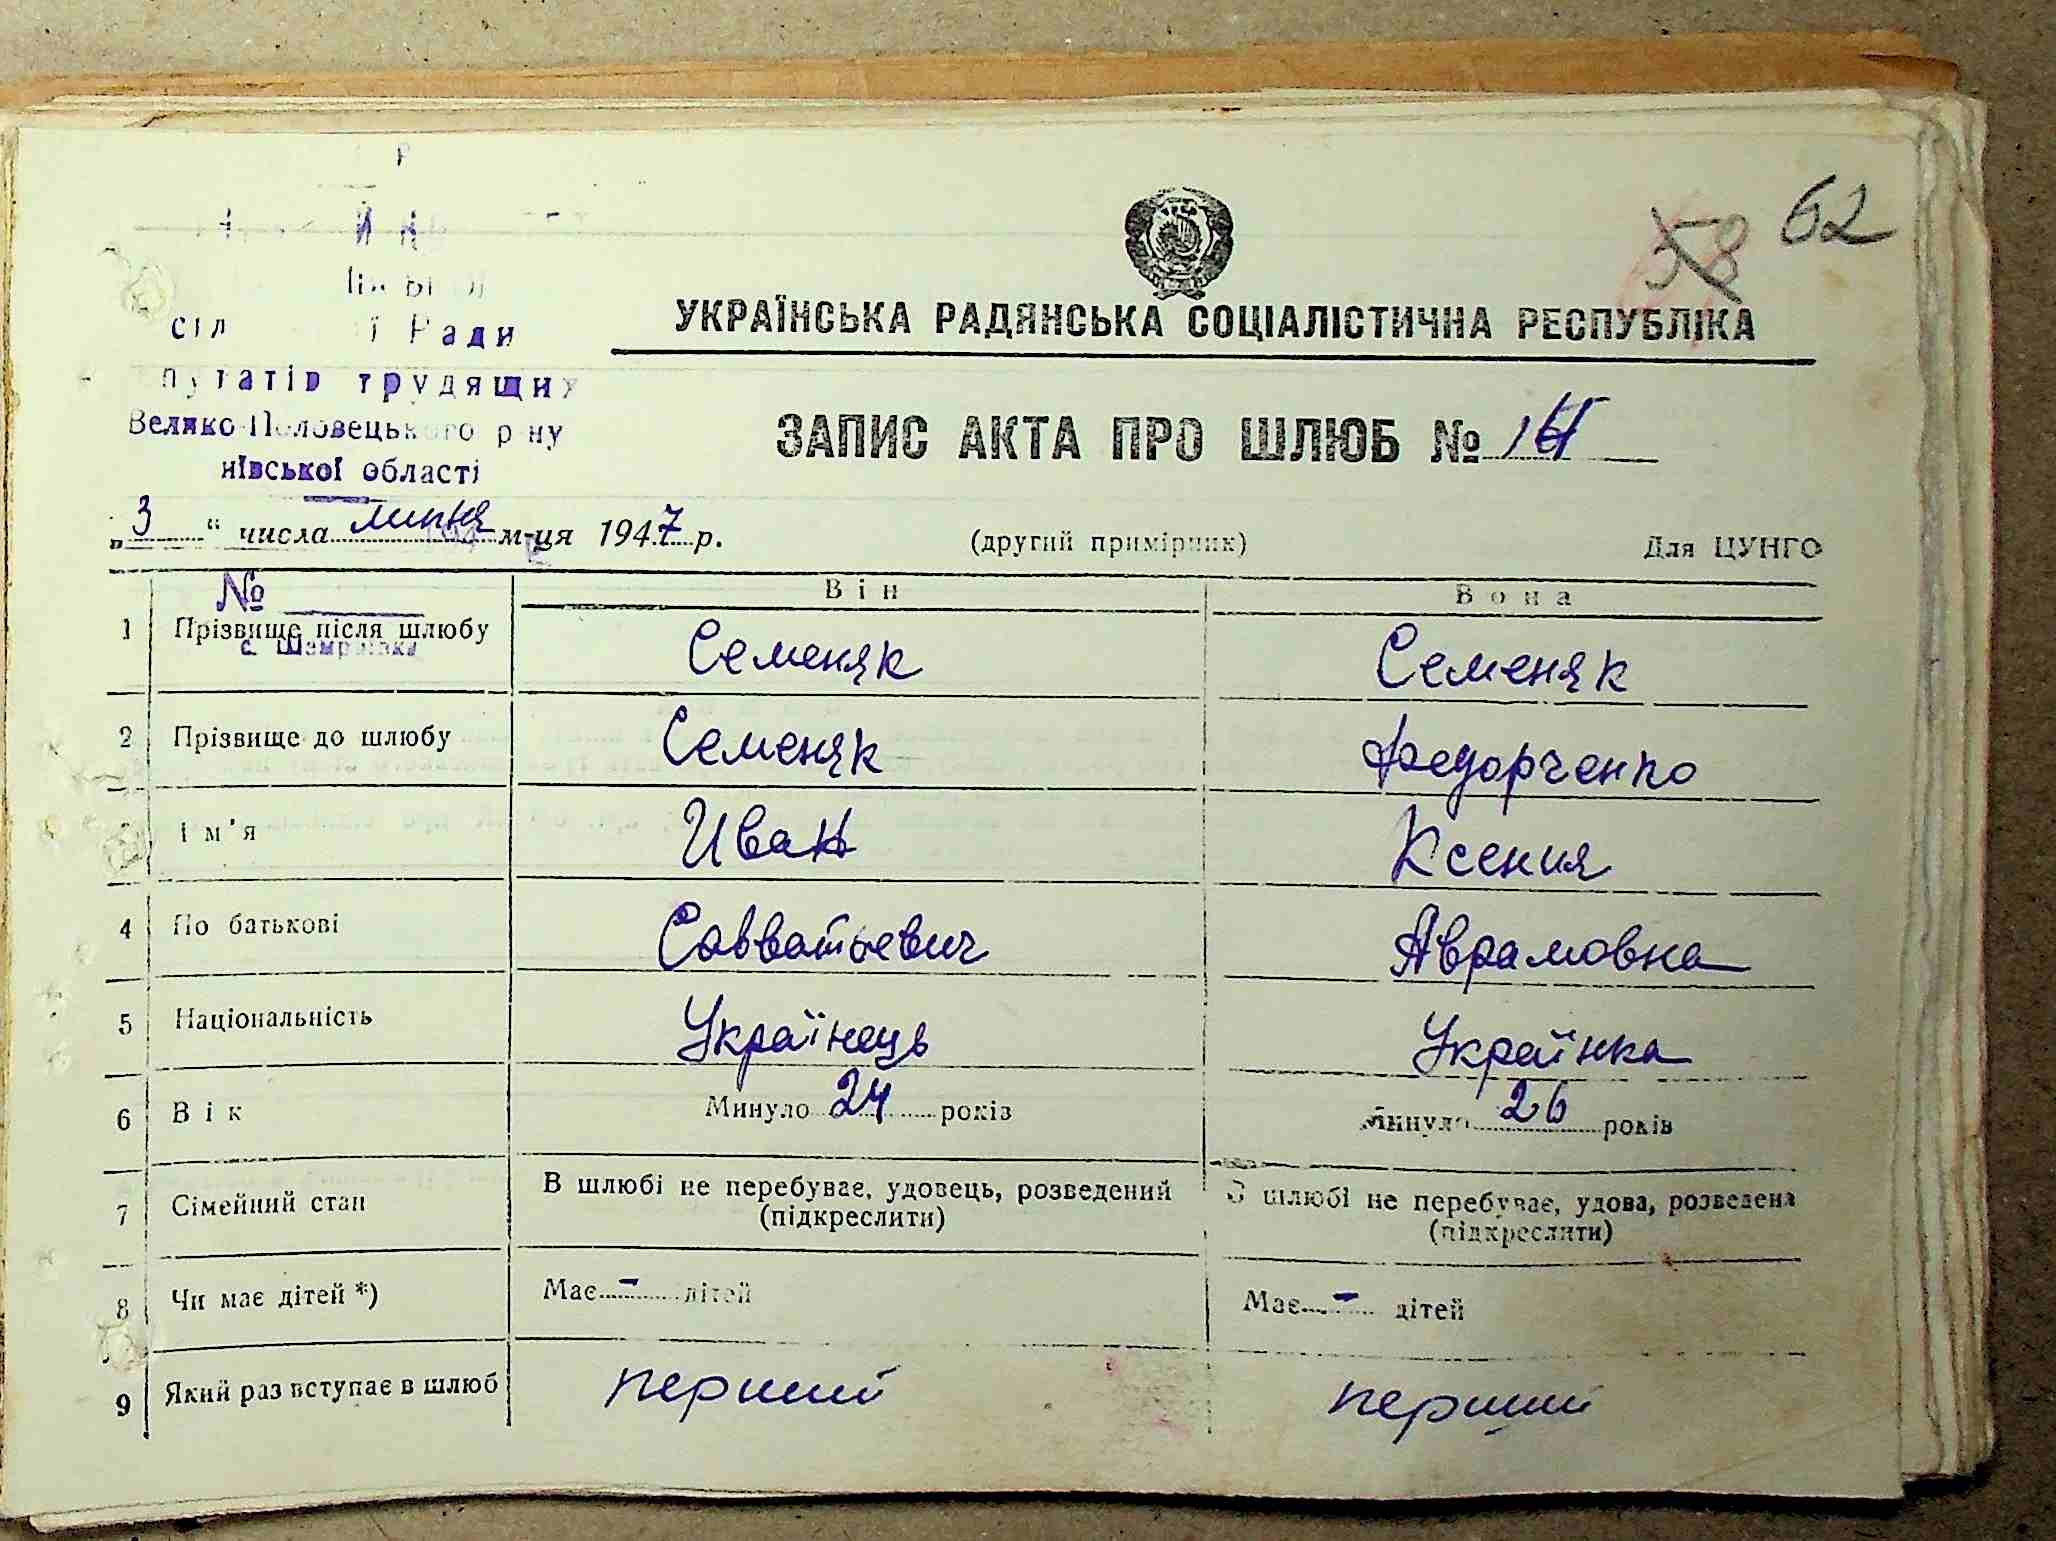 62
58
сіл ї Ради
путатів трудящих
Велико-Половецького р-ну
нівської області
УКРАЇНСЬКА РАДЯНСЬКА СОЦІАЛІСТИЧНА РЕСПУБЛІКА
ЗАПИС АКТА ПРО ШЛЮБ №
„ 3 “ числа липня м-ця 1947 р. (другий примірник) Для ЦУНГО
№
Він Вона
1 Прізвище після шлюбу Семеняк Семеняк
с. Шамраївка
2 Прізвище до шлюбу Семеняк Федорченко
3 Ім'я Иван Ксения
4 По батькові Савватьевич Аврамовна
5 Національність Українець Українка
6 Вік Минуло 24 років Минуло 26 років
7 Сімейний стан В шлюбі не перебуває, удовець, розведений (підкреслити) В шлюбі не перебуває, удова, розведена (підкреслити)
8 Чи має дітей *) Має - дітей Має - дітей
9 Який раз вступає в шлюб перший перший